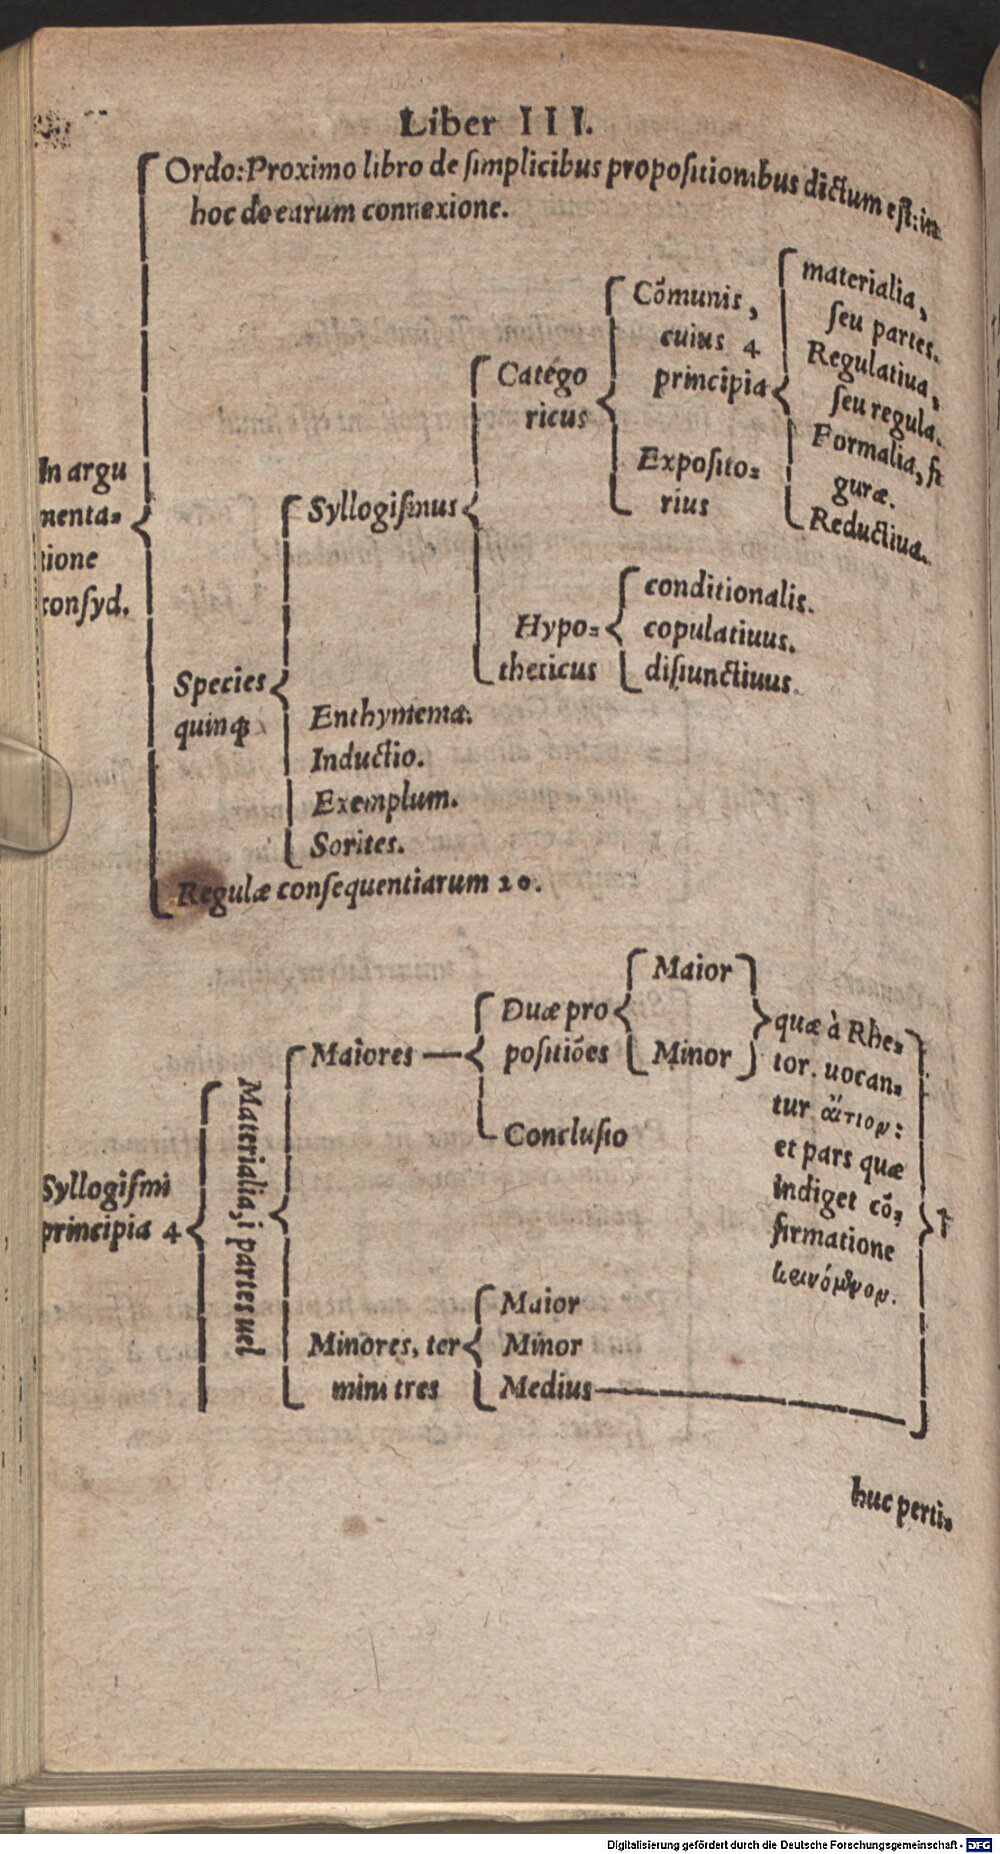 Liber III.
Ordo: Proximo libro de ſimplicibus propoſitionibus dictum eſt: in
hoc de earum connexione.
In argu
menta⸗
tione
conſyd.
Species
quinq́ꝫ
Syllogiſmus
Catego
ricus
Cōmunis,
cuius 4
principia
materialia,
ſeu partes.
Regulatiua,
ſeu regula.
Formalia, fi
guræ.
Reductiua.
Expoſito⸗
rius
Hypo⸗
theticus
conditionalis.
copulatiuus.
diſiunctiuus.
Enthymema.
Inductio.
Exemplum.
Sorites.
Regulæ conſequentiarum 20.
Syllogiſmi
principia 4
Materialia, i partes uel
Maiores
Duæ pro
poſitiões
Maior
Minor
quæ à Rhe⸗
tor. uocan⸗
tur αἴτιον:
et pars quæ
indiget cō⸗
firmatione
κρινόμενον.
†
Concluſio
Minores, ter
mini tres
Maior
Minor
Medius
huc perti⸗
Digitalisierung gefördert durch die Deutsche Forschungsgemeinschaft - DFG